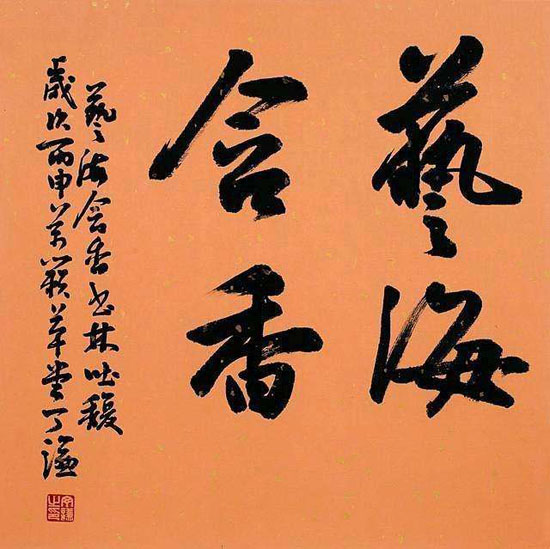 藝海
含香
藝海含香書林馥
歲次丙申草堂丁謙